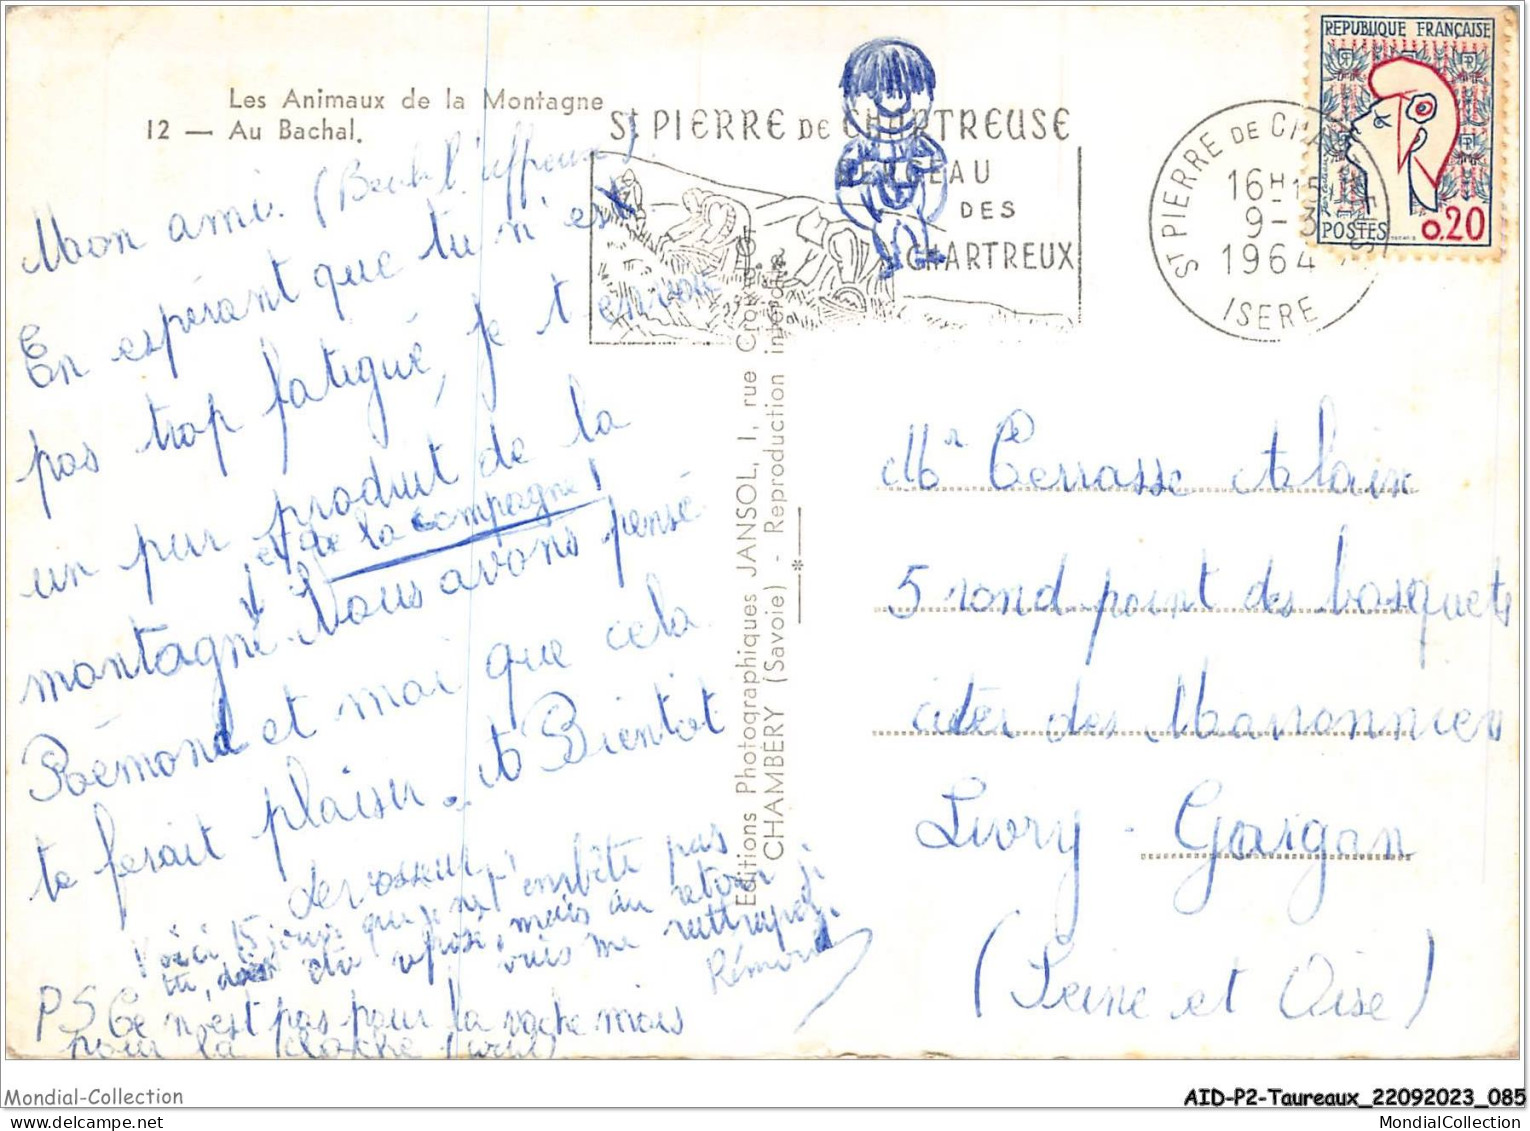 Les Animaux de la Montagne
12 — Au Bachal.
Mon ami. (
En espérant que tu n'es
pas trop fatigué, je t'envoie
un pur produit de la
et de la campagne!
montagne. Nous avons pensé
Rémond et moi que cela
te ferait plaisir. A Bientôt
Voici 15 jours que je ne t' embête pas
tu, dois être reposé, mais au retour je
vais me rattraper.
Rémond
PS Ce n'est pas pour la vache mais
pour la cloche
Editions Photographiques JANSOL, 1, rue Croix
CHAMBÉRY (Savoie) - Reproduction interdite
ST PIERRE DE CHARTREUSE
BERCEAU
DES
CHARTREUX
ST PIERRE DE CHARTREUSE
16H15
9-3
1964
ISERE
REPUBLIQUE FRANÇAISE
POSTES 0,20
Mr Terrasse Alain
5 rond-point des bosquets
citer des Maronnier
Livry-Gargan
(Seine et Oise)
Mondial-Collection
AID-P2-Taureaux_22092023_085
MondialCollection